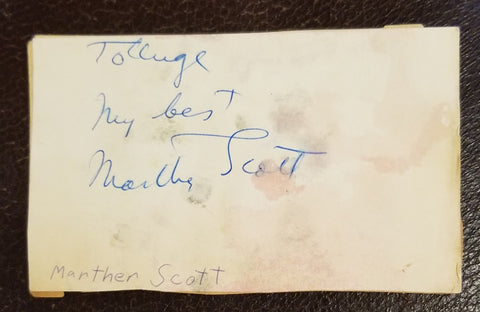 To
My best
Martha Scott
Manther Scott